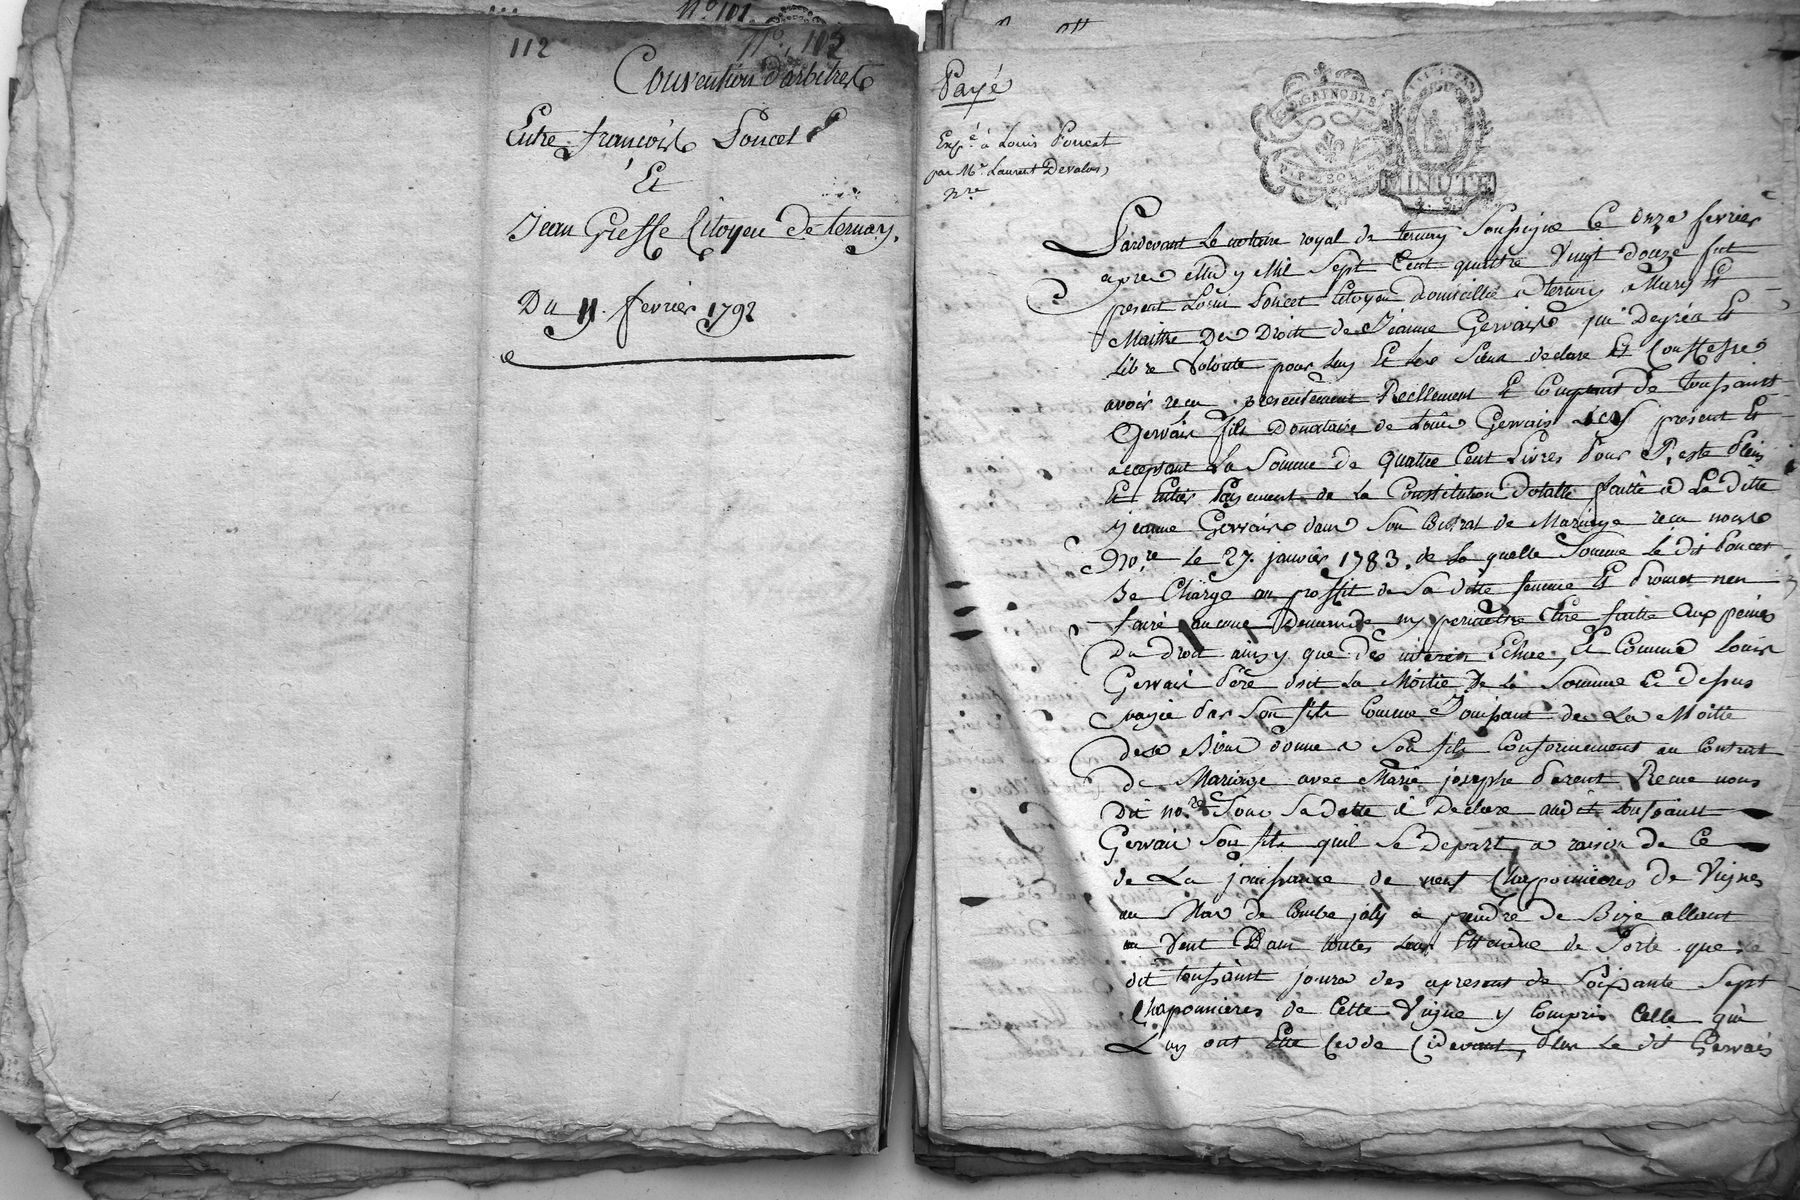 N.° 101
112
N.° 103
Convention d'arbitres
Entre françois Poncet
Et
Jean Gresse Citoyen De ternay.
Du 11. fevrier 1792
Payé
Exp.é à Louis Poncet
par M.e Laurent Devalois,
n.re
GRENOBLE
MINUTE
Pardevant Le notaire royal de ternay Soussigné Ce onze fevrier
apres midy Mil Sept Cent quattre Vingt douze fut
present Louis Poncet Citoyen domicillié a ternay Mary Et
Maitre Des Droits de Jeanne Gervais qui De gréa Et
Libre Volonté pour luy Et Les Siens declare Et Confesse
avoir recu presentement Reellement Et Comptant De toussaint
Gervais fils Donataire de Louis Gervais icy present Et
acceptant La Somme de quatre Cent Livres Pour Reste Plein
Et Entier Payement de La Constitution Dotalle faitte a La ditte
jeanne Gervais dans Son Contrat de Mariage recu nous
No.re Le 27. janvier 1783. de La quelle Somme Le dit Poncet
Se Charge au proffit de Sa ditte femme Et Promet nen
faire aucune Demande ny permettre Etre faitte Aux peines
Du Droit ainsy que Des interets Echus, Et Comme Louis
Gervais Pere doit La Moitié De La Somme Ci Dessus
payée Par Son fils Comme Jouissant de La Moitié
des Biens donné a Son fils Conformement au Contrat
De Mariage avec Marie josephe Parent Recue nous
Dit no.re Sous Sa datte il Declare audit toussaint
Gervais Son fils quil Se Depart, a raison de Ce
de La jouissance de neuf Chaponnieres de Vignes
au Mas de Combe joly a prendre de Bize allant
au Vent Dans toutes Leur Ettendue de Sorte que le
dit toussaint jouira des apresent de Soixante Sept
Chaponnieres de Cette Vigne y Compris Celle qui
L'uy ont Ette Cedée Cidevant, Par Le dit Gervais